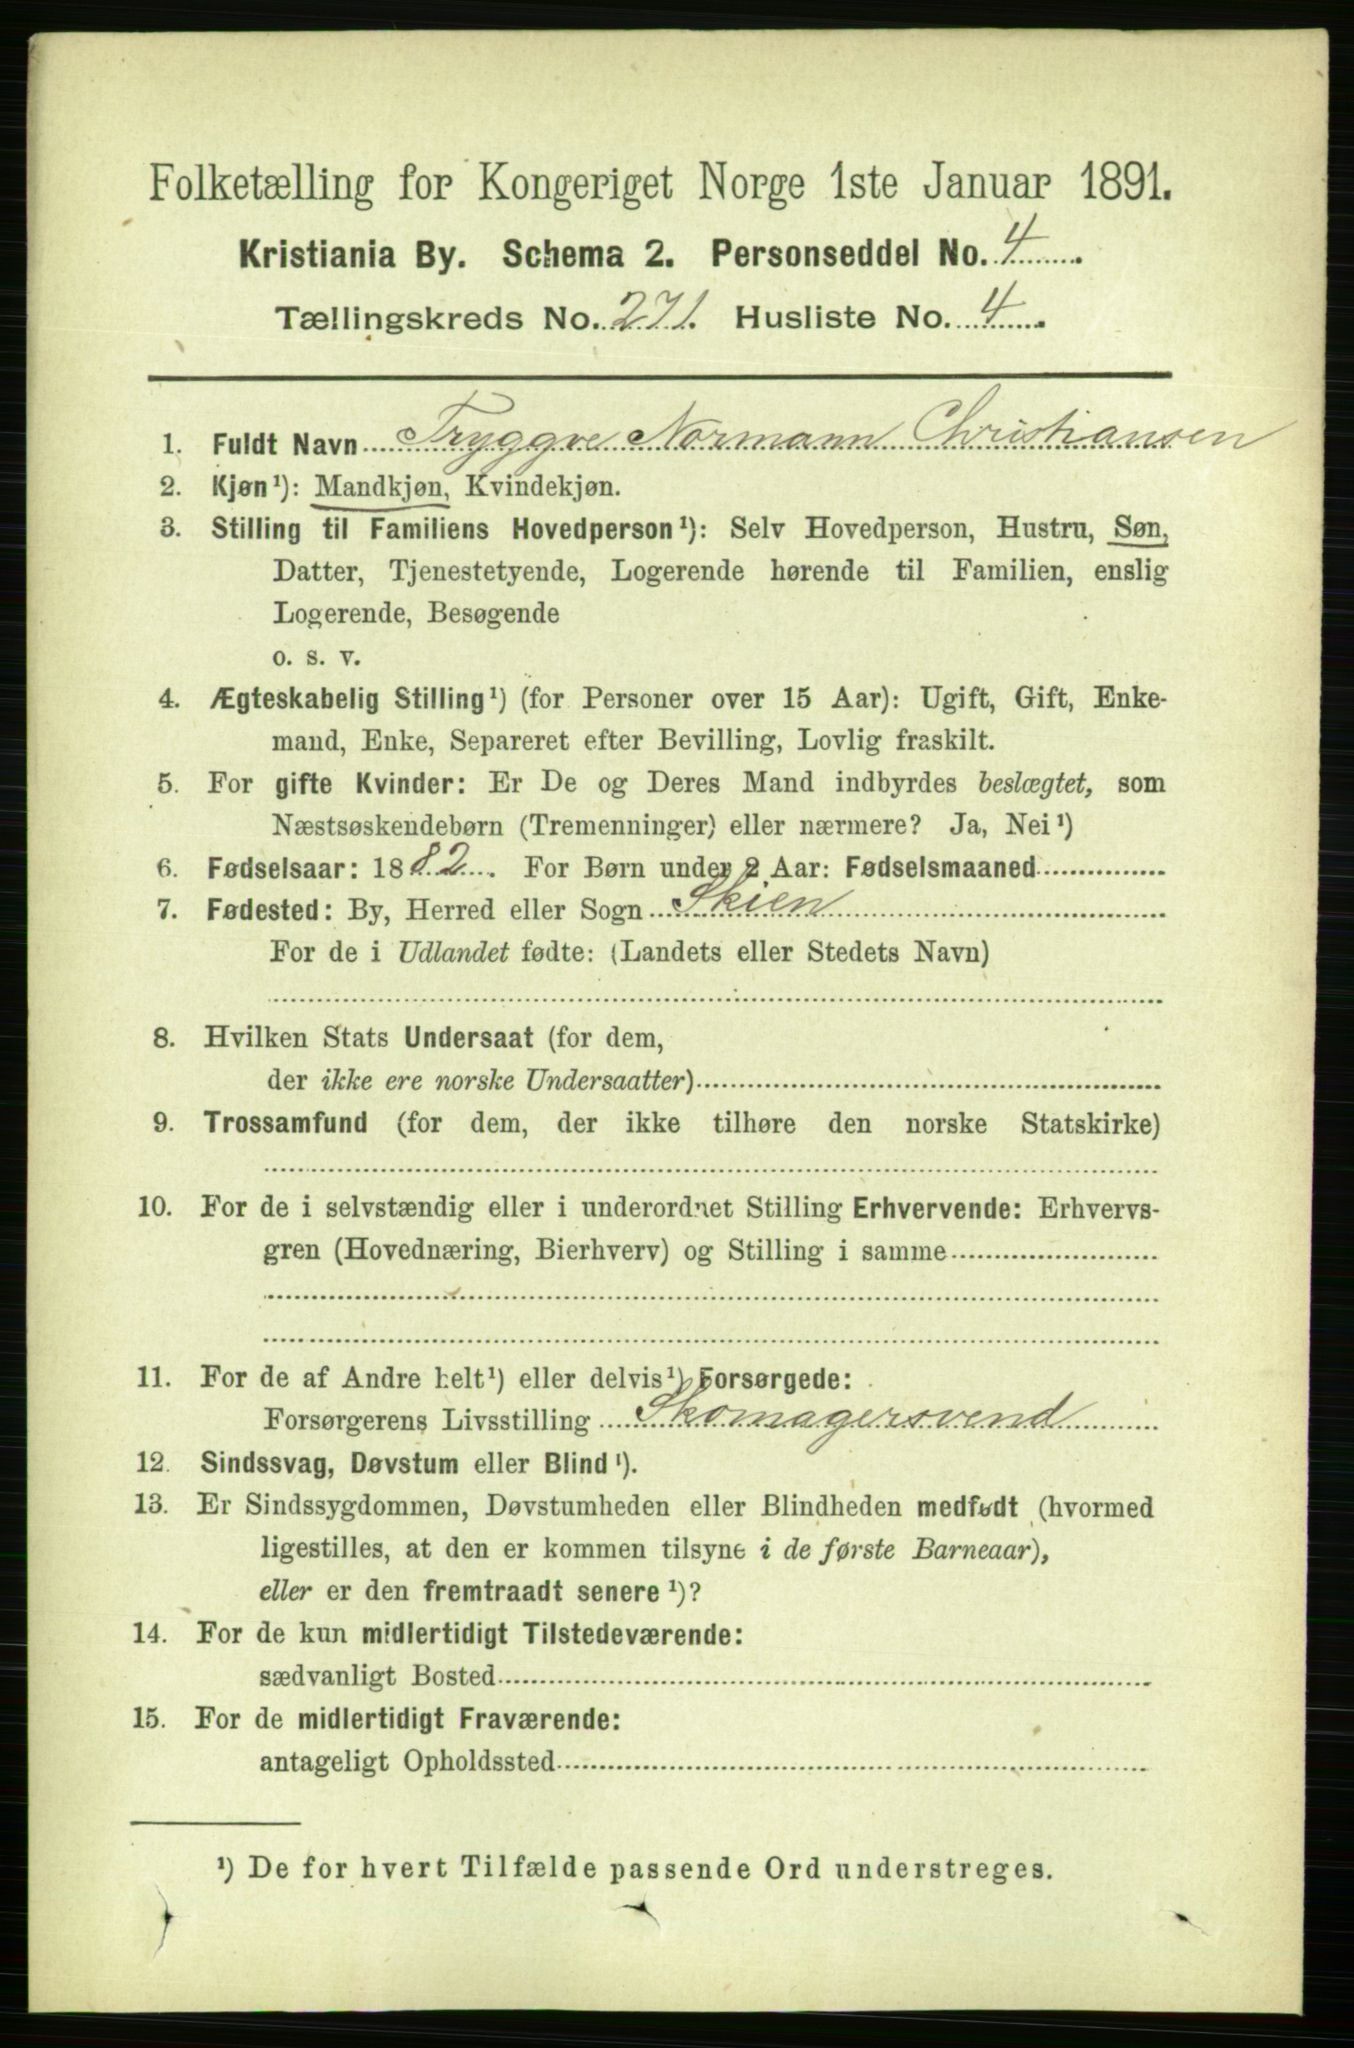 Folketælling for Kongeriget Norge 1ste Januar 1891.
Kristiania By. Schema 2. Personseddel No. 4
Tællingskreds No. 271. Husliste No. 4
1. Fuldt Navn Tryggve Normann Christiansen
2. Kjøn¹): Mandkjøn, Kvindekjøn.
3. Stilling til Familiens Hovedperson¹): Selv Hovedperson, Hustru, Søn,
Datter, Tjenestetyende, Logerende hørende til Familien, enslig
Logerende, Besøgende
o. s. v.
4. Ægteskabelig Stilling¹) (for Personer over 15 Aar): Ugift, Gift, Enke-
mand, Enke, Separeret efter Bevilling, Lovlig fraskilt.
5. For gifte Kvinder: Er De og Deres Mand indbyrdes beslægtet, som
Næstsøskendebørn (Tremenninger) eller nærmere? Ja, Nei¹)
6. Fødselsaar: 1882. For Børn under 2 Aar: Fødselsmaaned
7. Fødested: By, Herred eller Sogn Skien
For de i Udlandet fødte: (Landets eller Stedets Navn)
8. Hvilken Stats Undersaat (for dem,
der ikke ere norske Undersaatter)
9. Trossamfund (for dem, der ikke tilhøre den norske Statskirke)
10. For de i selvstændig eller i underordnet Stilling Erhvervende: Erhvervs-
gren (Hovednæring, Bierhverv) og Stilling i samme
11. For de af Andre helt¹) eller delvis¹) Forsørgede:
Forsørgerens Livsstilling Skomagersvend
12. Sindssvag, Døvstum eller Blind¹).
13. Er Sindssygdommen, Døvstumheden eller Blindheden medfødt (hvormed
ligestilles, at den er kommen tilsyne i de første Barneaar),
eller er den fremtraadt senere¹)?
14. For de kun midlertidigt Tilstedeværende:
sædvanligt Bosted
15. For de midlertidigt Fraværende:
antageligt Opholdssted
¹) De for hvert Tilfælde passende Ord understreges.